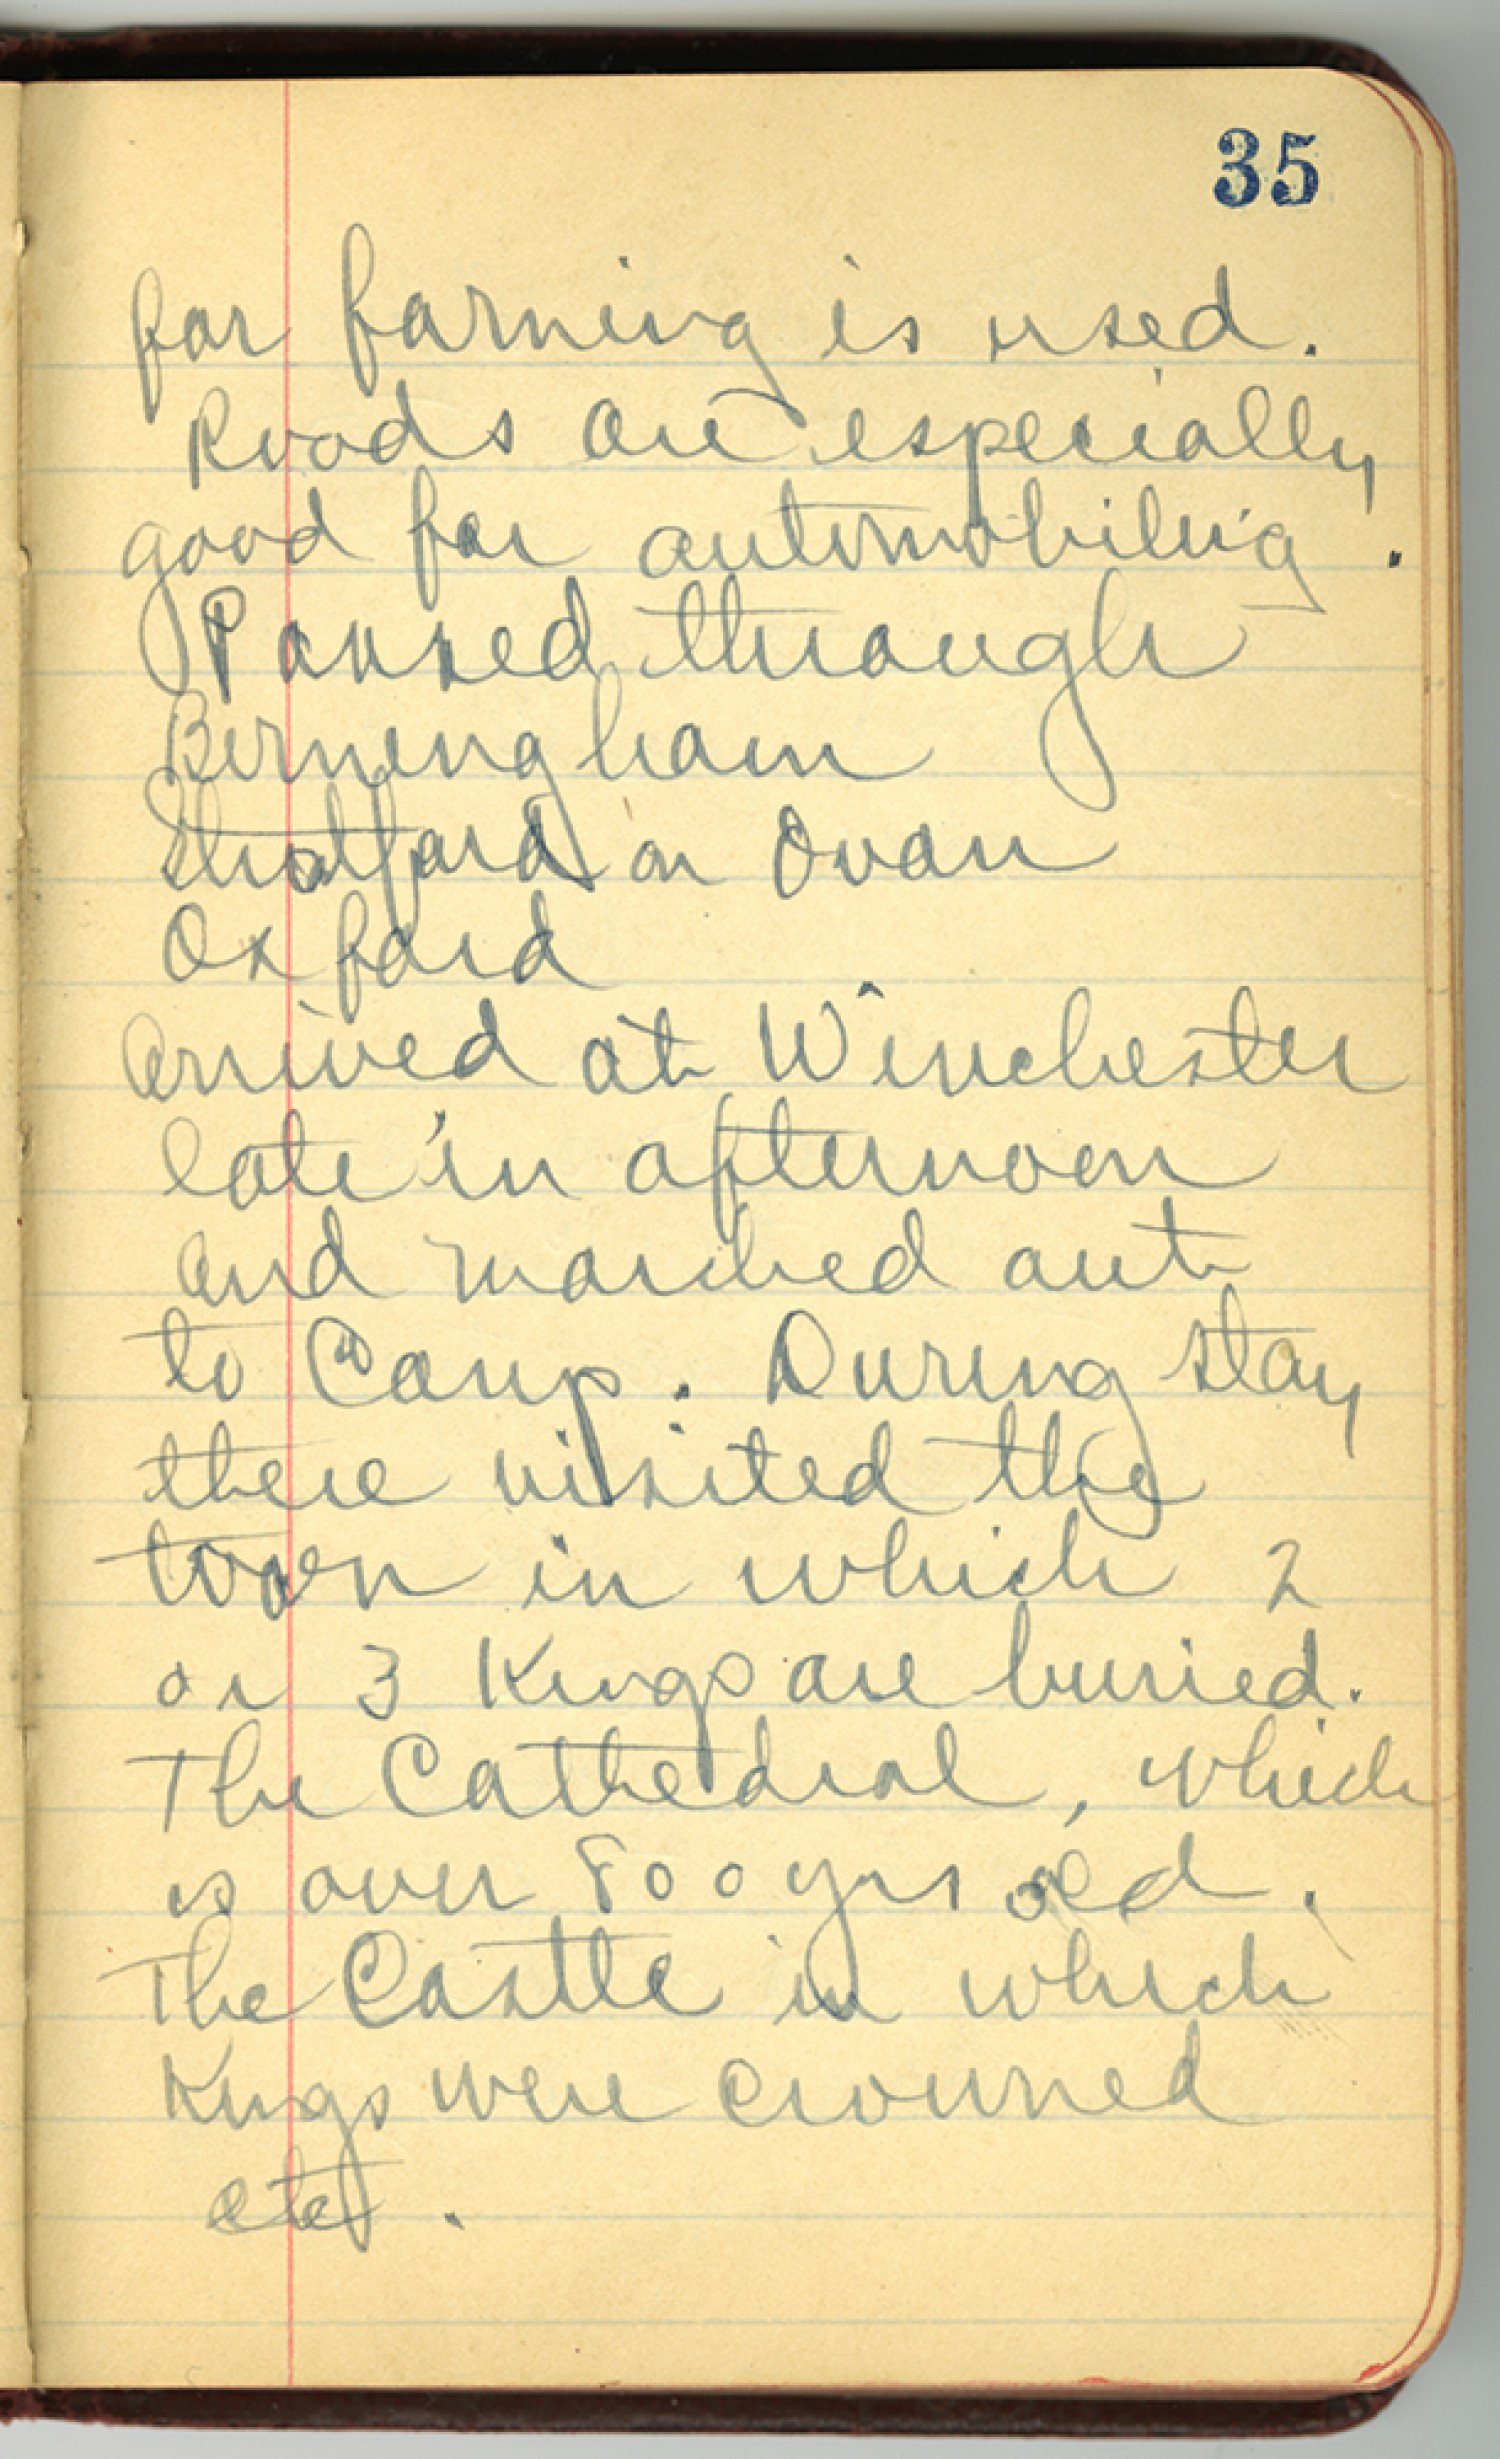 35
for farming is used.
Roads are especially
good for automobiling.
Passed through
Birmingham
Stratford on Ovan
Oxford
Arrived at Winchester
late in afternoon
and marched out
to Camp. During stay
there visited the
town in which 2
or 3 Kings are buried.
The Cathedral, which
is over 800 yrs old.
The Castle in which
Kings were crowned
etc.